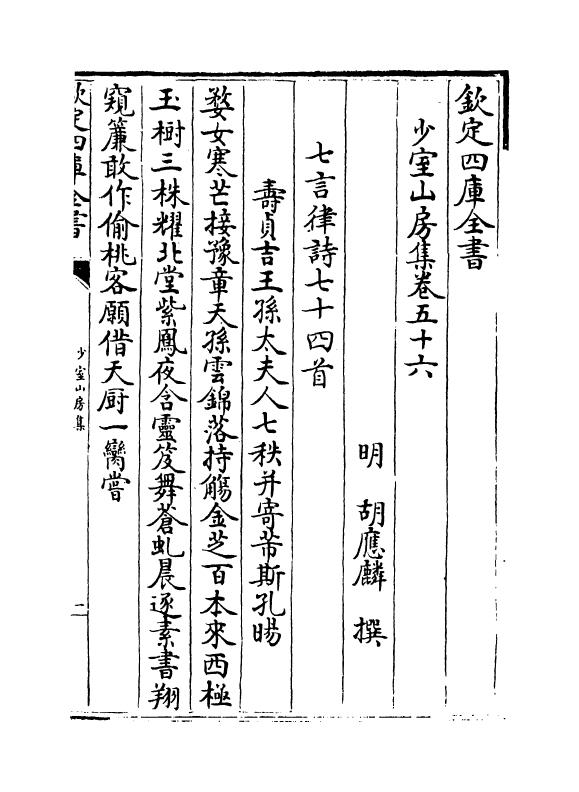 欽定四庫全書
少室山房集卷五十六
明 胡應麟 撰
七言律詩七十四首
壽貞吉王孫太夫人七秩并寄芾斯孔暘
婺女寒芒接豫章天孫雲錦落持觴金芝百本來西極
玉樹三株耀北堂紫鳳夜含靈笈舞蒼虬晨逐素書翔
窺簾敢作偷桃客願借天厨一臠嘗
欽定四庫全書
少室山房集